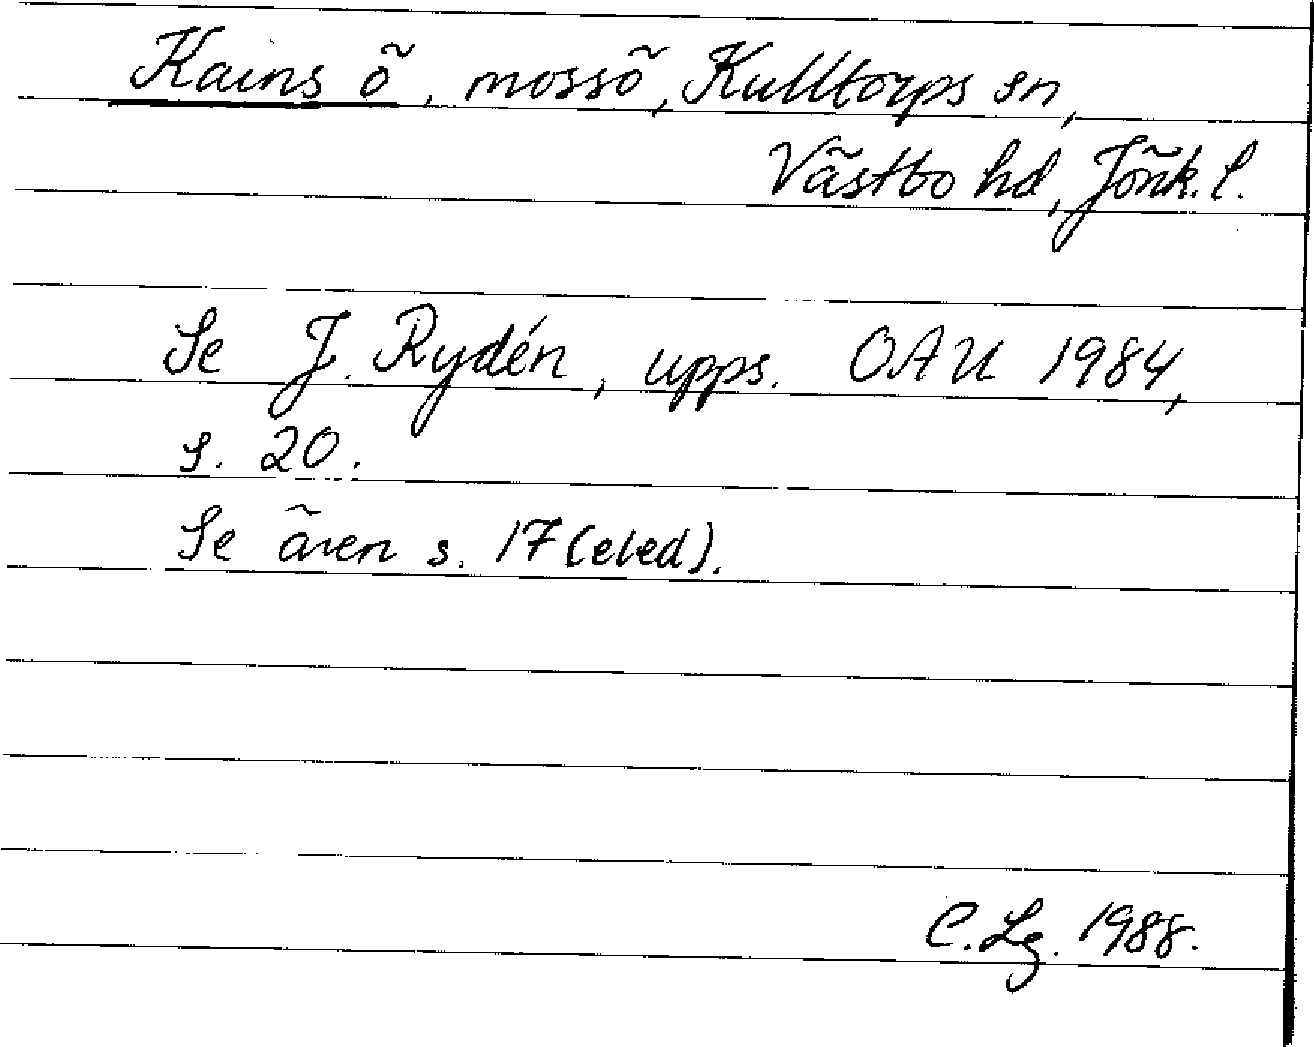 Kains ö, mossö, Kulltorps sn,
Västbo hd, Jönk. l.
Se J. Rydén, upps. OAU 1984,
s. 20.
Se även s. 17 (eled).
C. Lg. 1988.